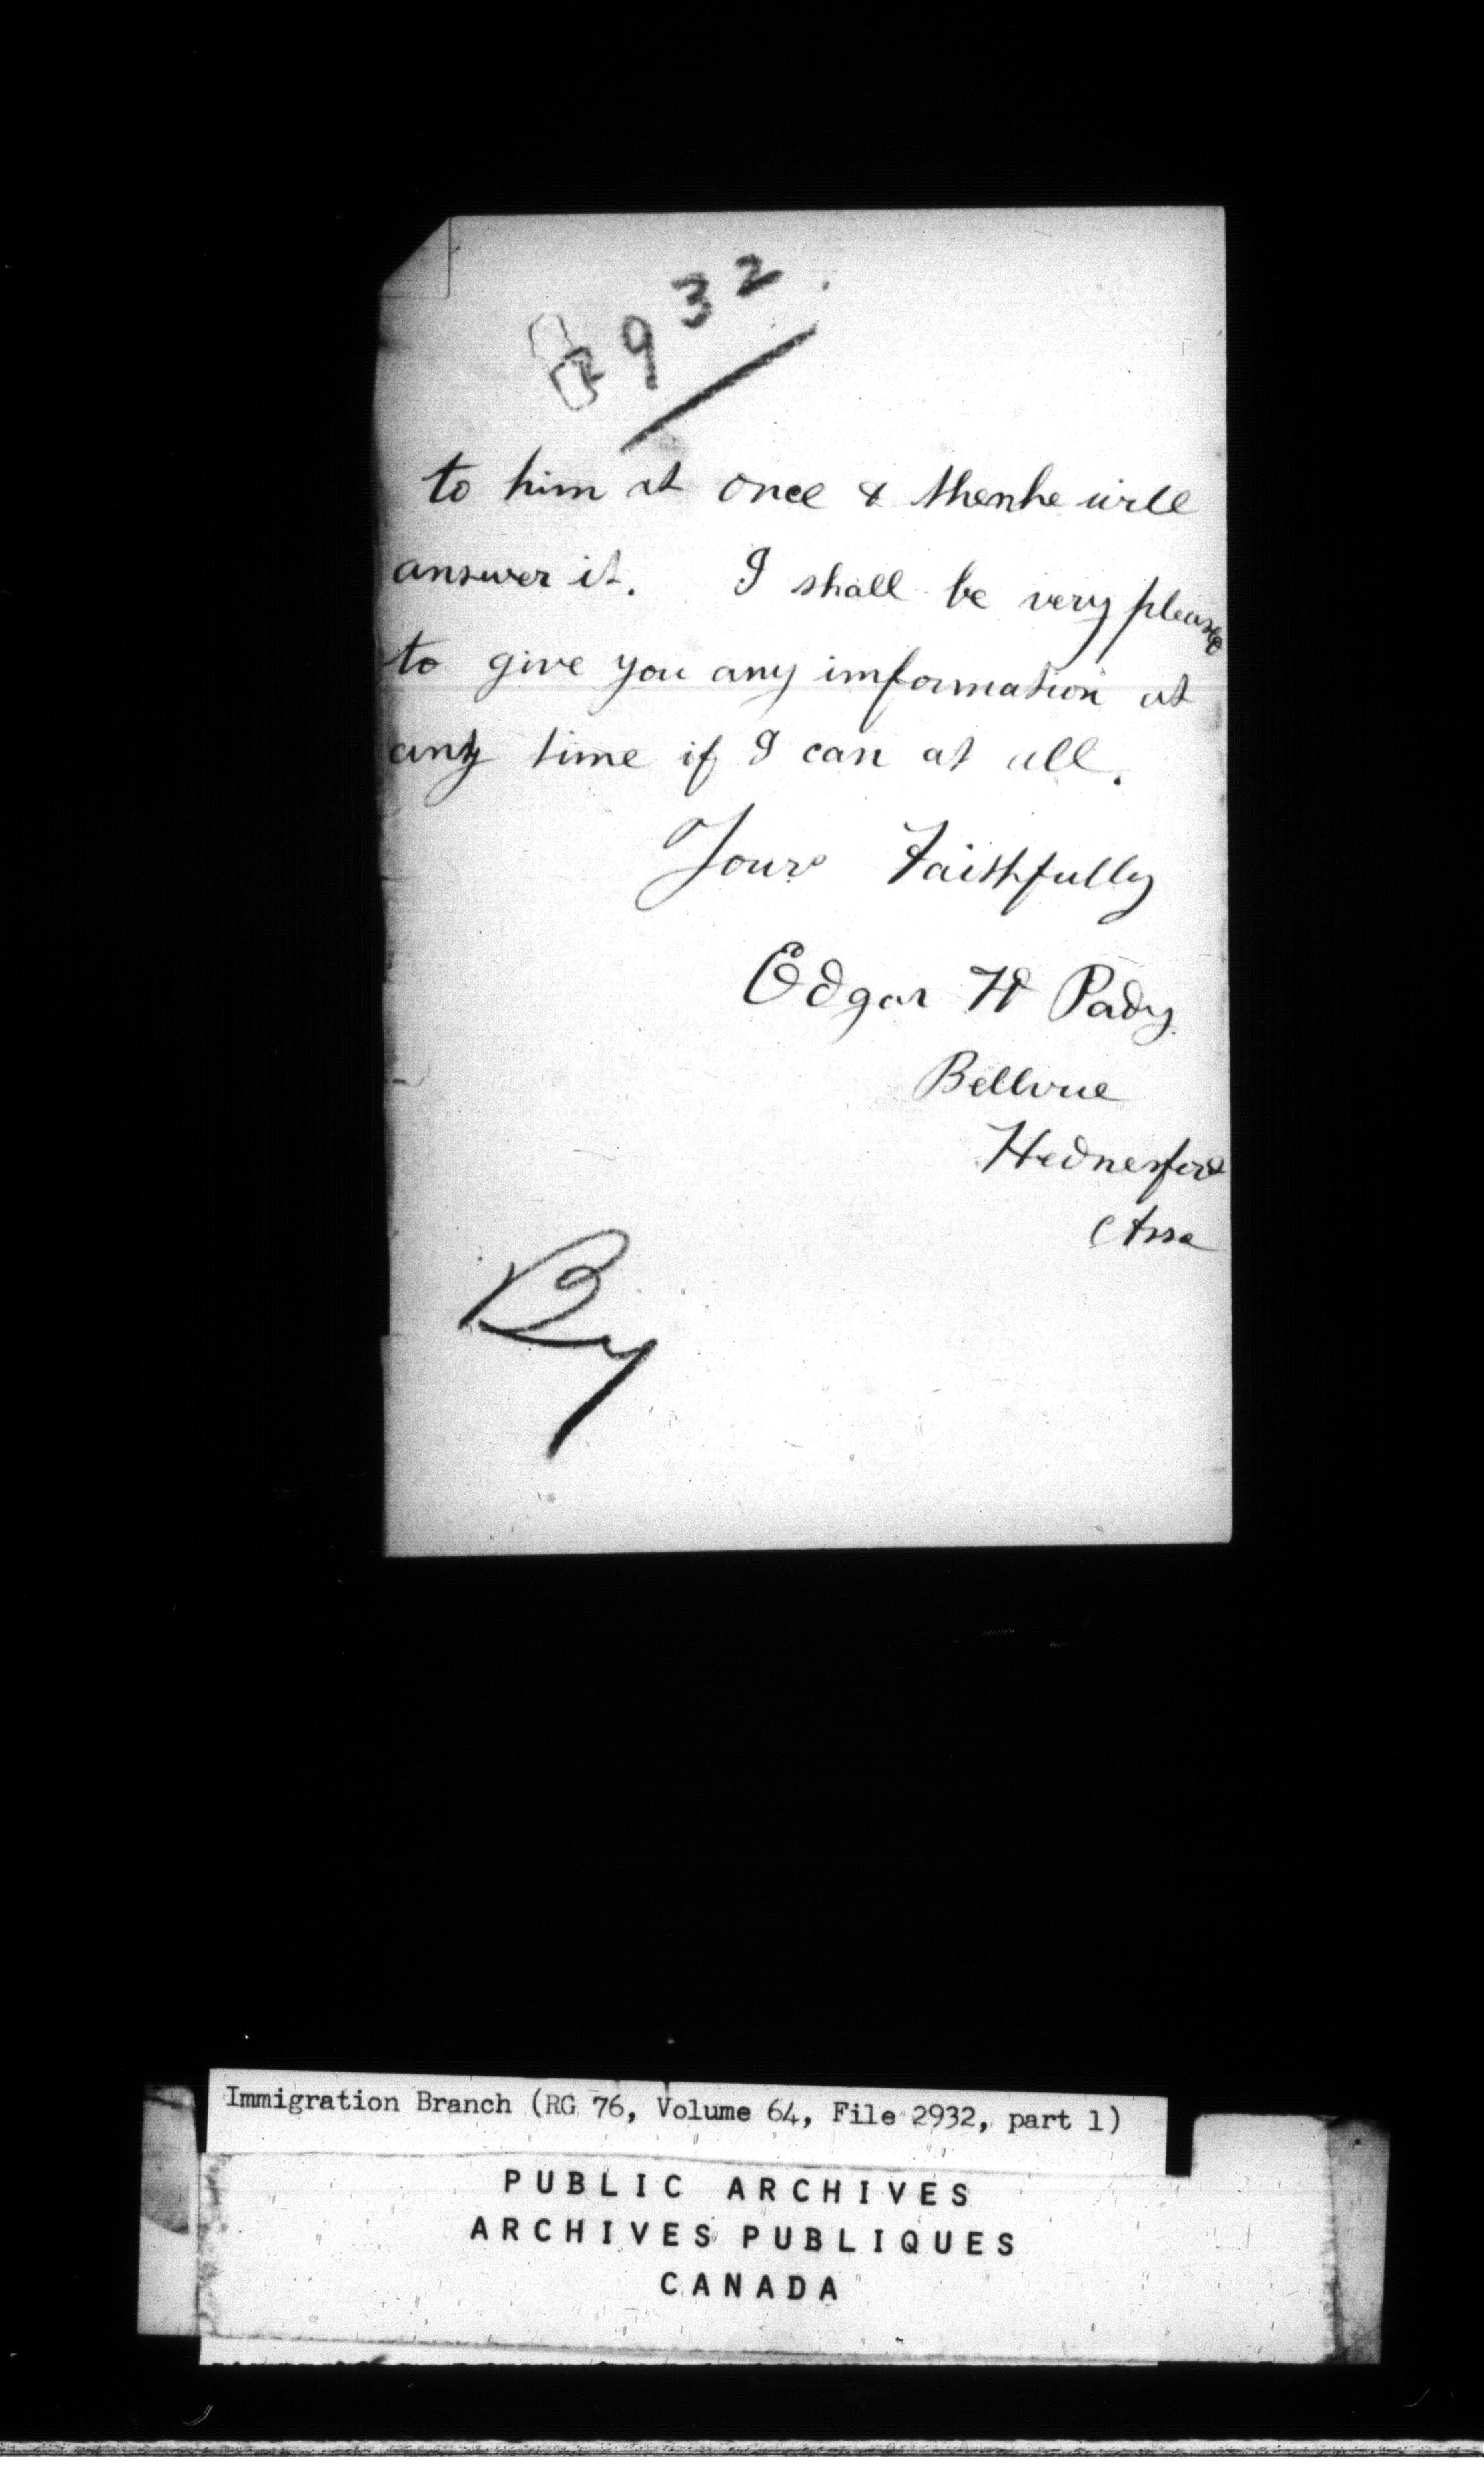 2932.
to him at once & then he will
answer it. I shall be very pleased
to give you any imformation at
any time if I can at all.
Yours Faithfully
Edgar H Pady
Bellvue
Hednesford
Assa
By
Immigration Branch (RG 76, Volume 64, File 2932, part 1)
PUBLIC ARCHIVES
ARCHIVES PUBLIQUES
CANADA